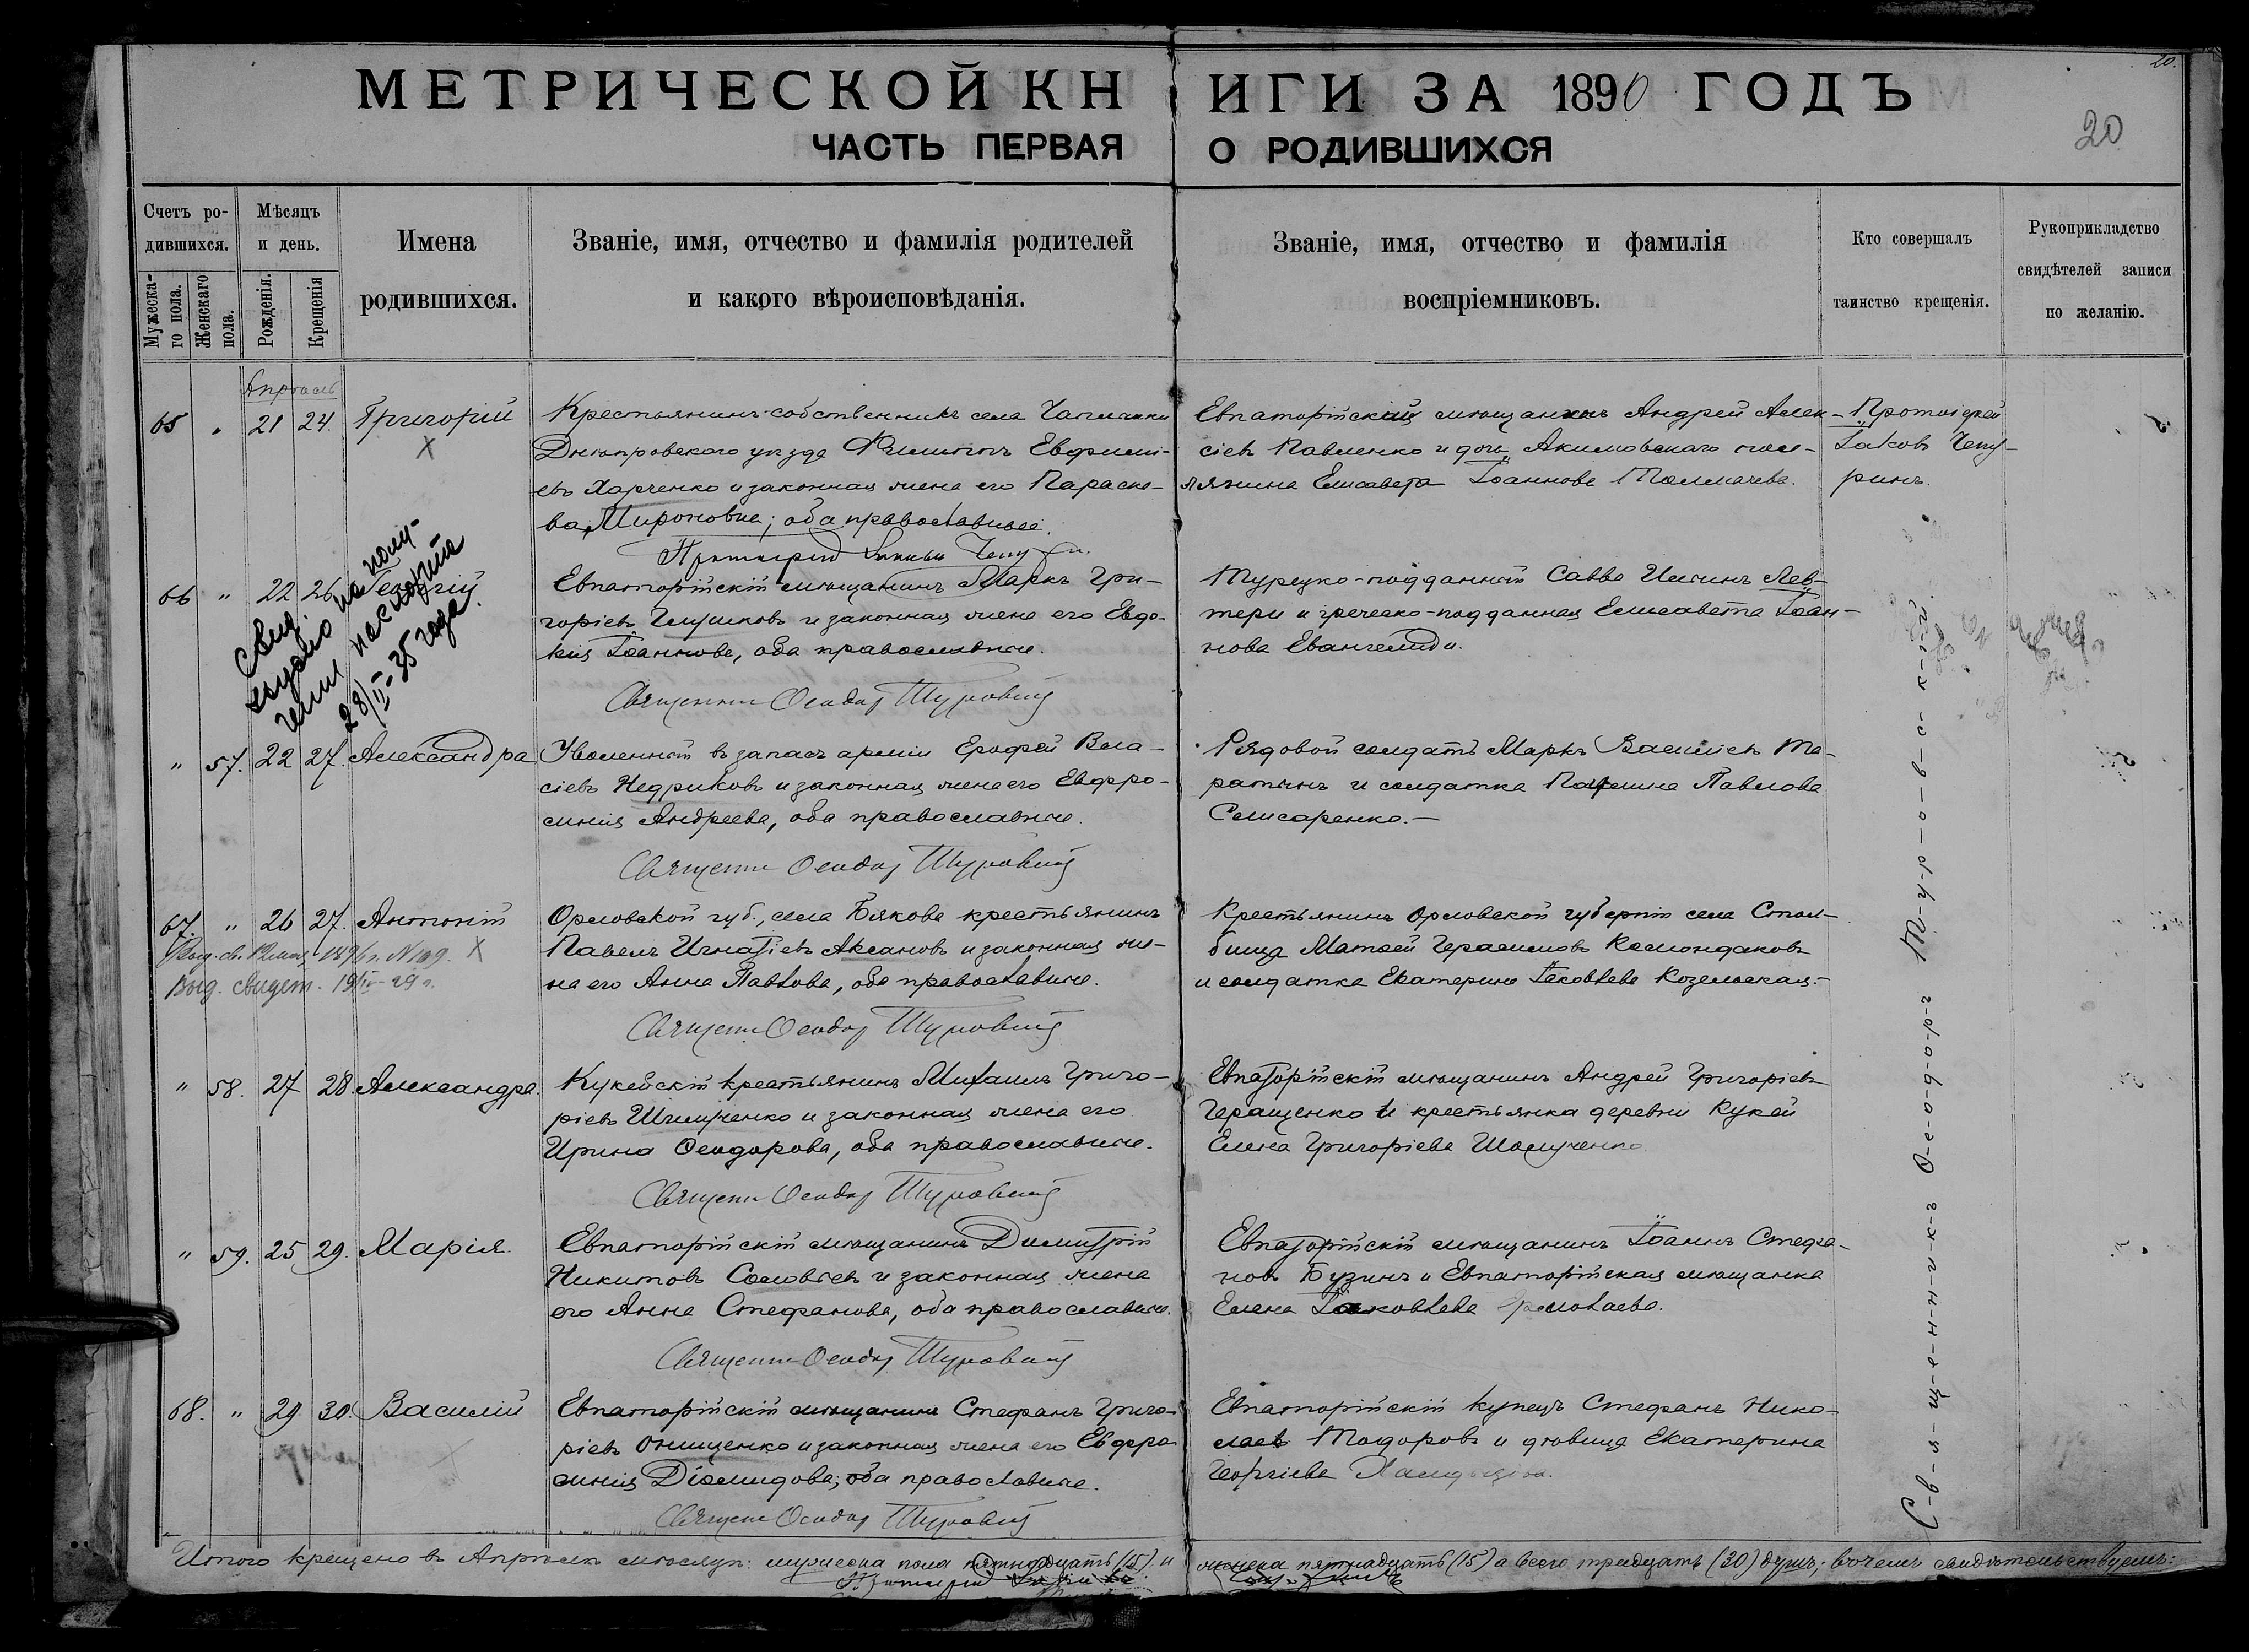 20.
МЕТРИЧЕСКОЙ КНИГИ ЗА 1890 ГОДЪ
20
ЧАСТЬ ПЕРВАЯ О РОДИВШИХСЯ
Счетъ ро-
дившихся.
Мужеска-
го пола.
Женскаго
пола.
Мѣсяцъ
и день.
Рожденія.
Крещенія
Имена
родившихся.
Званіе, имя, отчество и фамилія родителей
и какого вѣроисповѣданія.
Званіе, имя, отчество и фамилія
воспріемниковъ.
Кто совершалъ
таинство крещенія.
Рукоприкладство
свидѣтелей записи
по желанію.
Апрѣль
65 " 21 24. Григорій
Крестьянинъ-собственникъ села Чаплинки
Днѣпровскаго уѣзда Филиппъ Евфимі-
евъ Харченко и законная жена его Параске-
ва Миронова; оба православные.
Евпаторійскій мѣщанинъ Андрей Алек-
сіевъ Павленко и дочь Акимовскаго посе-
лянина Елисавета Іоаннова Толмачева.
Протоіерей
Іаковъ Чепу-
ринъ.
66 " 22 26 Георгій
Евпаторійскій мѣщанинъ Маркъ Гри-
горіевъ Глушковъ и законная жена его Евдо-
кія Іоаннова, оба православные.
Священникъ Ѳеодоръ Туровскій
Турецко-подданный Савва Илі Лев-
тери и греческо-подданная Елисавета Іоан-
нова Евангелиди.
Свид.
на полу-
чения паспорта
28/II-35 года.
" 57. 22 27. Александра
Уволенный въ запасъ арміи Ерофей Вла-
сіевъ Недриковъ и законная жена его Евфро-
синія Андреева, оба православные.
Священникъ Ѳеодоръ Туровскій
Рядовой солдатъ Маркъ Василіевъ Та-
ратынъ и солдатка Павлова
Слисаренко.—
67. " 26 27. Антоній
Выд. свидет. 19/IV-29 г.
Орловской губ., села Бякова крестьянинъ
Павелъ Игнатіевъ Аксановъ и законная же-
на его Анна Павлова, оба православные.
Священникъ Ѳеодоръ Туровскій
Крестьянинъ Орловской губерніи села Стол-
бища Матѳей Герасимовъ
и солдатка Екатерина Іаковлева Козельская.—
" 58. 27 28. Александра.
Кукейскій крестьянинъ Михаилъ Григо-
ріевъ и законная жена его
Ирина Ѳеодорова, оба православные.
Священникъ Ѳеодоръ Туровскій
Евпаторійскій мѣщанинъ Андрей Григоріевъ
Геращенко и крестьянка деревни Кукей
Елена Григоріева
" 59. 25 29. Марія.
Евпаторійскій мѣщанинъ Димитрій
Никитовъ Соловьевъ и законная жена
его Анна Стефанова, оба православные.
Священникъ Ѳеодоръ Туровскій
Евпаторійскій мѣщанинъ Іоаннъ Стефа-
новъ Бузинъ и Евпаторійская мѣщанка
Елена Іаковлева
68. " 29 30. Василій
Евпаторійскій мѣщанинъ Стефанъ Григо-
ріевъ Онищенко и законная жена его Евфро-
синія Діомидова; оба православные.
Священникъ Ѳеодоръ Туровскій
Евпаторійскій купецъ Стефанъ Нико-
лаевъ Тодоровъ и дѣвица Екатерина
Георгіева
С-в-я-щ-е-н-н-и-к-ъ Ѳ-е-о-д-о-р-ъ Т-у-р-о-в-с-к-і-й.
Итого крещено въ Апрѣлѣ мѣсяцѣ: мужеска пола пятнадцать (15) и женска пятнадцать (15) а всего тридцать (30) душъ; въ чемъ свидѣтельствуемъ: